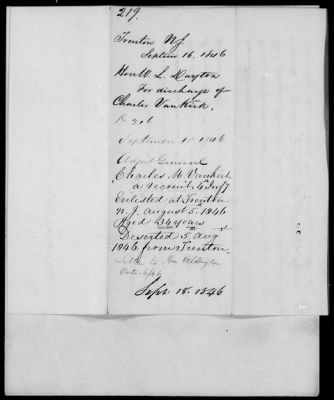 219.
Trenton NJ.
Septem 16, 1846
Hon W. L. Dayton
For discharge of
Charles VanKirk.
D 206
September 1846
Adjut General
Charles M. Vankirk
a recruit 4 Inf
Enlisted at Trenton
N. J. August 5. 1846
Aged 34 years
Deserted 5 Aug
1846 from Trenton
Letter to Hon
Sept: 18. 1846